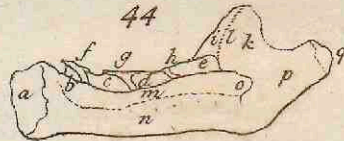 44
f g h i l k q
a b c d e o p
m
n